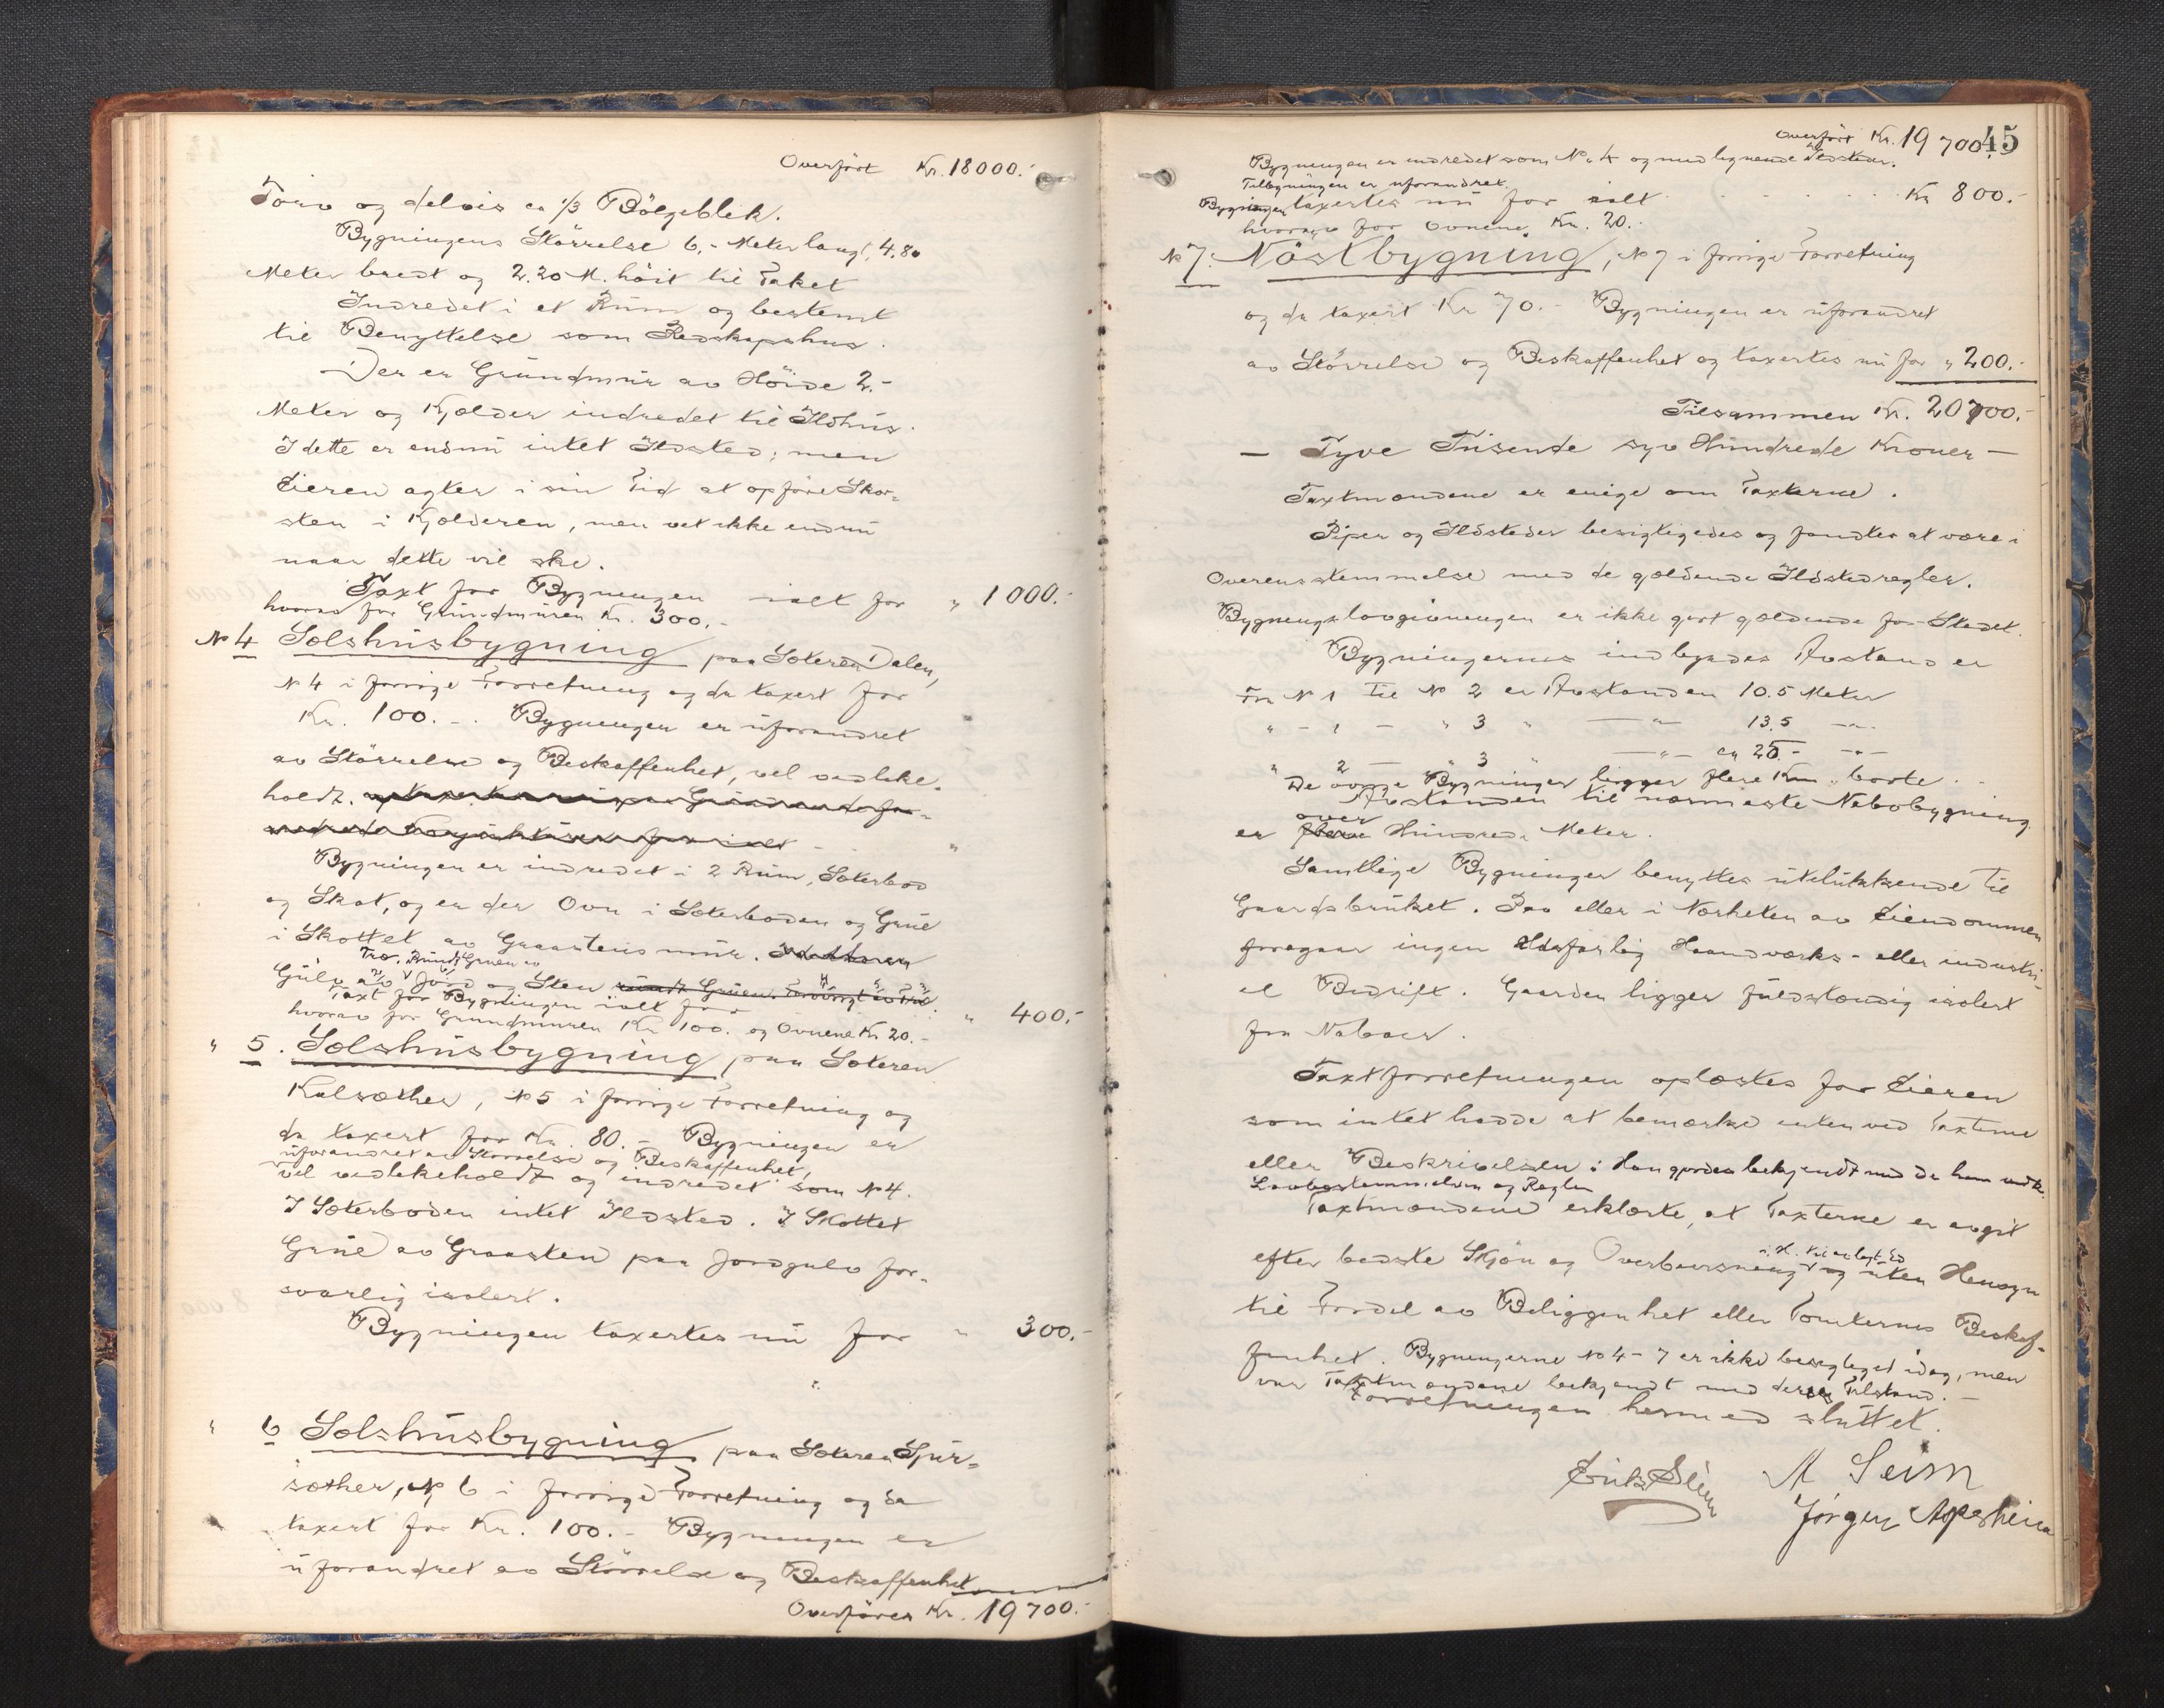 Overført Kr. 18000.-
Torv og delvis ca 1/3 Bölgeblek.
Bygningens Störrelse 6,- Meter langt, 4.80
Meter bredt og 2.20 M. höit til Taket
Indredet i et Rum og bestemt
til Benyttelse som Redskapshus.
Der er Grundmur av Höide 2.-
Meter og Kjælder indredet til Ildhus.
I dette er endnu intet Ildsted; men
Eieren agter i sin Tid at opföre Skor-
sten i Kjælderen, men vet ikke endnu
naar dette vil ske.
Taxt for Bygningen ialt for " 1000.-
hvorav for Grundmuren Kr. 300.-
No 4 Sælshusbygning paa Sæteren Dalen,
No 4 i forrige Forretning og da taxert for
Kr. 100.-. Bygningen er uforandret
av Störrelse og Beskaffenhet, vel vedlike-
holdt.
Bygningen er indredet i 2 Rum, Sæterbod
og Skot, og er der Ovn i Sæterboden og Grue
i Skottet av Graastensmur.
Træ. Rundt Gruen av
Gulv av Jord og Sten
Taxt for Bygningen ialt for " 400.-
hvorav for Grundmuren Kr 100. og Ovnene Kr 20.-
" 5. Sælshusbygning paa Sæteren
Kalsæther, No 5 i forrige Forretning og
da taxert for Kr. 80.- Bygningen er
uforandret av Störrelse og Beskaffenhet,
vel vedlikeholdt og indredet som No 4.
I Sæterboden intet Ildsted. I Skottet
Grue av Graasten paa Jordgulv for-
svarlig isolert.
Bygningen taxertes nu for " 300.-
" 6 Sælshusbygning paa Sæteren Spur-
sæther, No 6 i forrige Forretning og da
taxert for Kr. 100.- Bygningen er
uforandret av Störrelse og Beskaffenhet
Overföres Kr. 19700.-
45
Overfört Kr. 19700.-
Bygningen er indredet som No 4 og med lignende Ildsteder.
Tilbygningen er uforandret.
Bygningen taxertes nu for ialt Kr 800.-
hvorav for Ovnene Kr. 20.-
No 7. Nöstbygning, No 7 i forrige Forretning
og da taxert Kr 70.- Bygningen er uforandret
av Störrelse og Beskaffenhet og taxertes nu for " 200.-
Tilsammen Kr. 20700.-
— Tyve Tusende syv Hundrede Kroner —
Taxtmændene er enige om Taxterne.
Piper og Ildsteder besigtigedes og fandtes at være i
Overensstemmelse med de gældende Ildstedregler.
Bygningslovgivningen er ikke gjort gældende for Stedet.
Bygningernes indbyrdes Avstand er
Fra No 1 til No 2 er Avstanden 10.5 Meter
" - 1 - " 3 " —"— 13.5 —"—
" 2 — " 3 —"— ca 25.- —"—
De øvrige Bygninger ligger flere Km. borte.
Avstanden til nærmeste Nabobygning
over
er flere Hundrede Meter.
Samtlige Bygninger benyttes utelukkende til
Gaardsbruket. Paa eller i Nærheten av Eiendommen
foregaar ingen ildsfarlig Haandværks- eller industri-
el Bedrift. Gaarden ligger fuldstændig isolert
fra Naboer.
Taxtforretningen oplæstes for Eieren
som intet hadde at bemærke enten ved Taxterne
eller Beskrivelsen: Han gjordes bekjendt med de ham vedk.
Lovbestemmelser og Regler
Taxtmændene erklærte, at Taxterne er avgit
efter bedste Skjön og Overbevisning i H. til avlagt Ed og uten Hensyn
til Fordel av Beliggenhet eller Tomternes Beskaf-
fenhet. Bygningerne No 4-7 er ikke besigtiget idag, men
var Taxtmændene bekjendt med deres Tilstand.-
Forretningen hermed sluttet.
M Seim
Jörgen